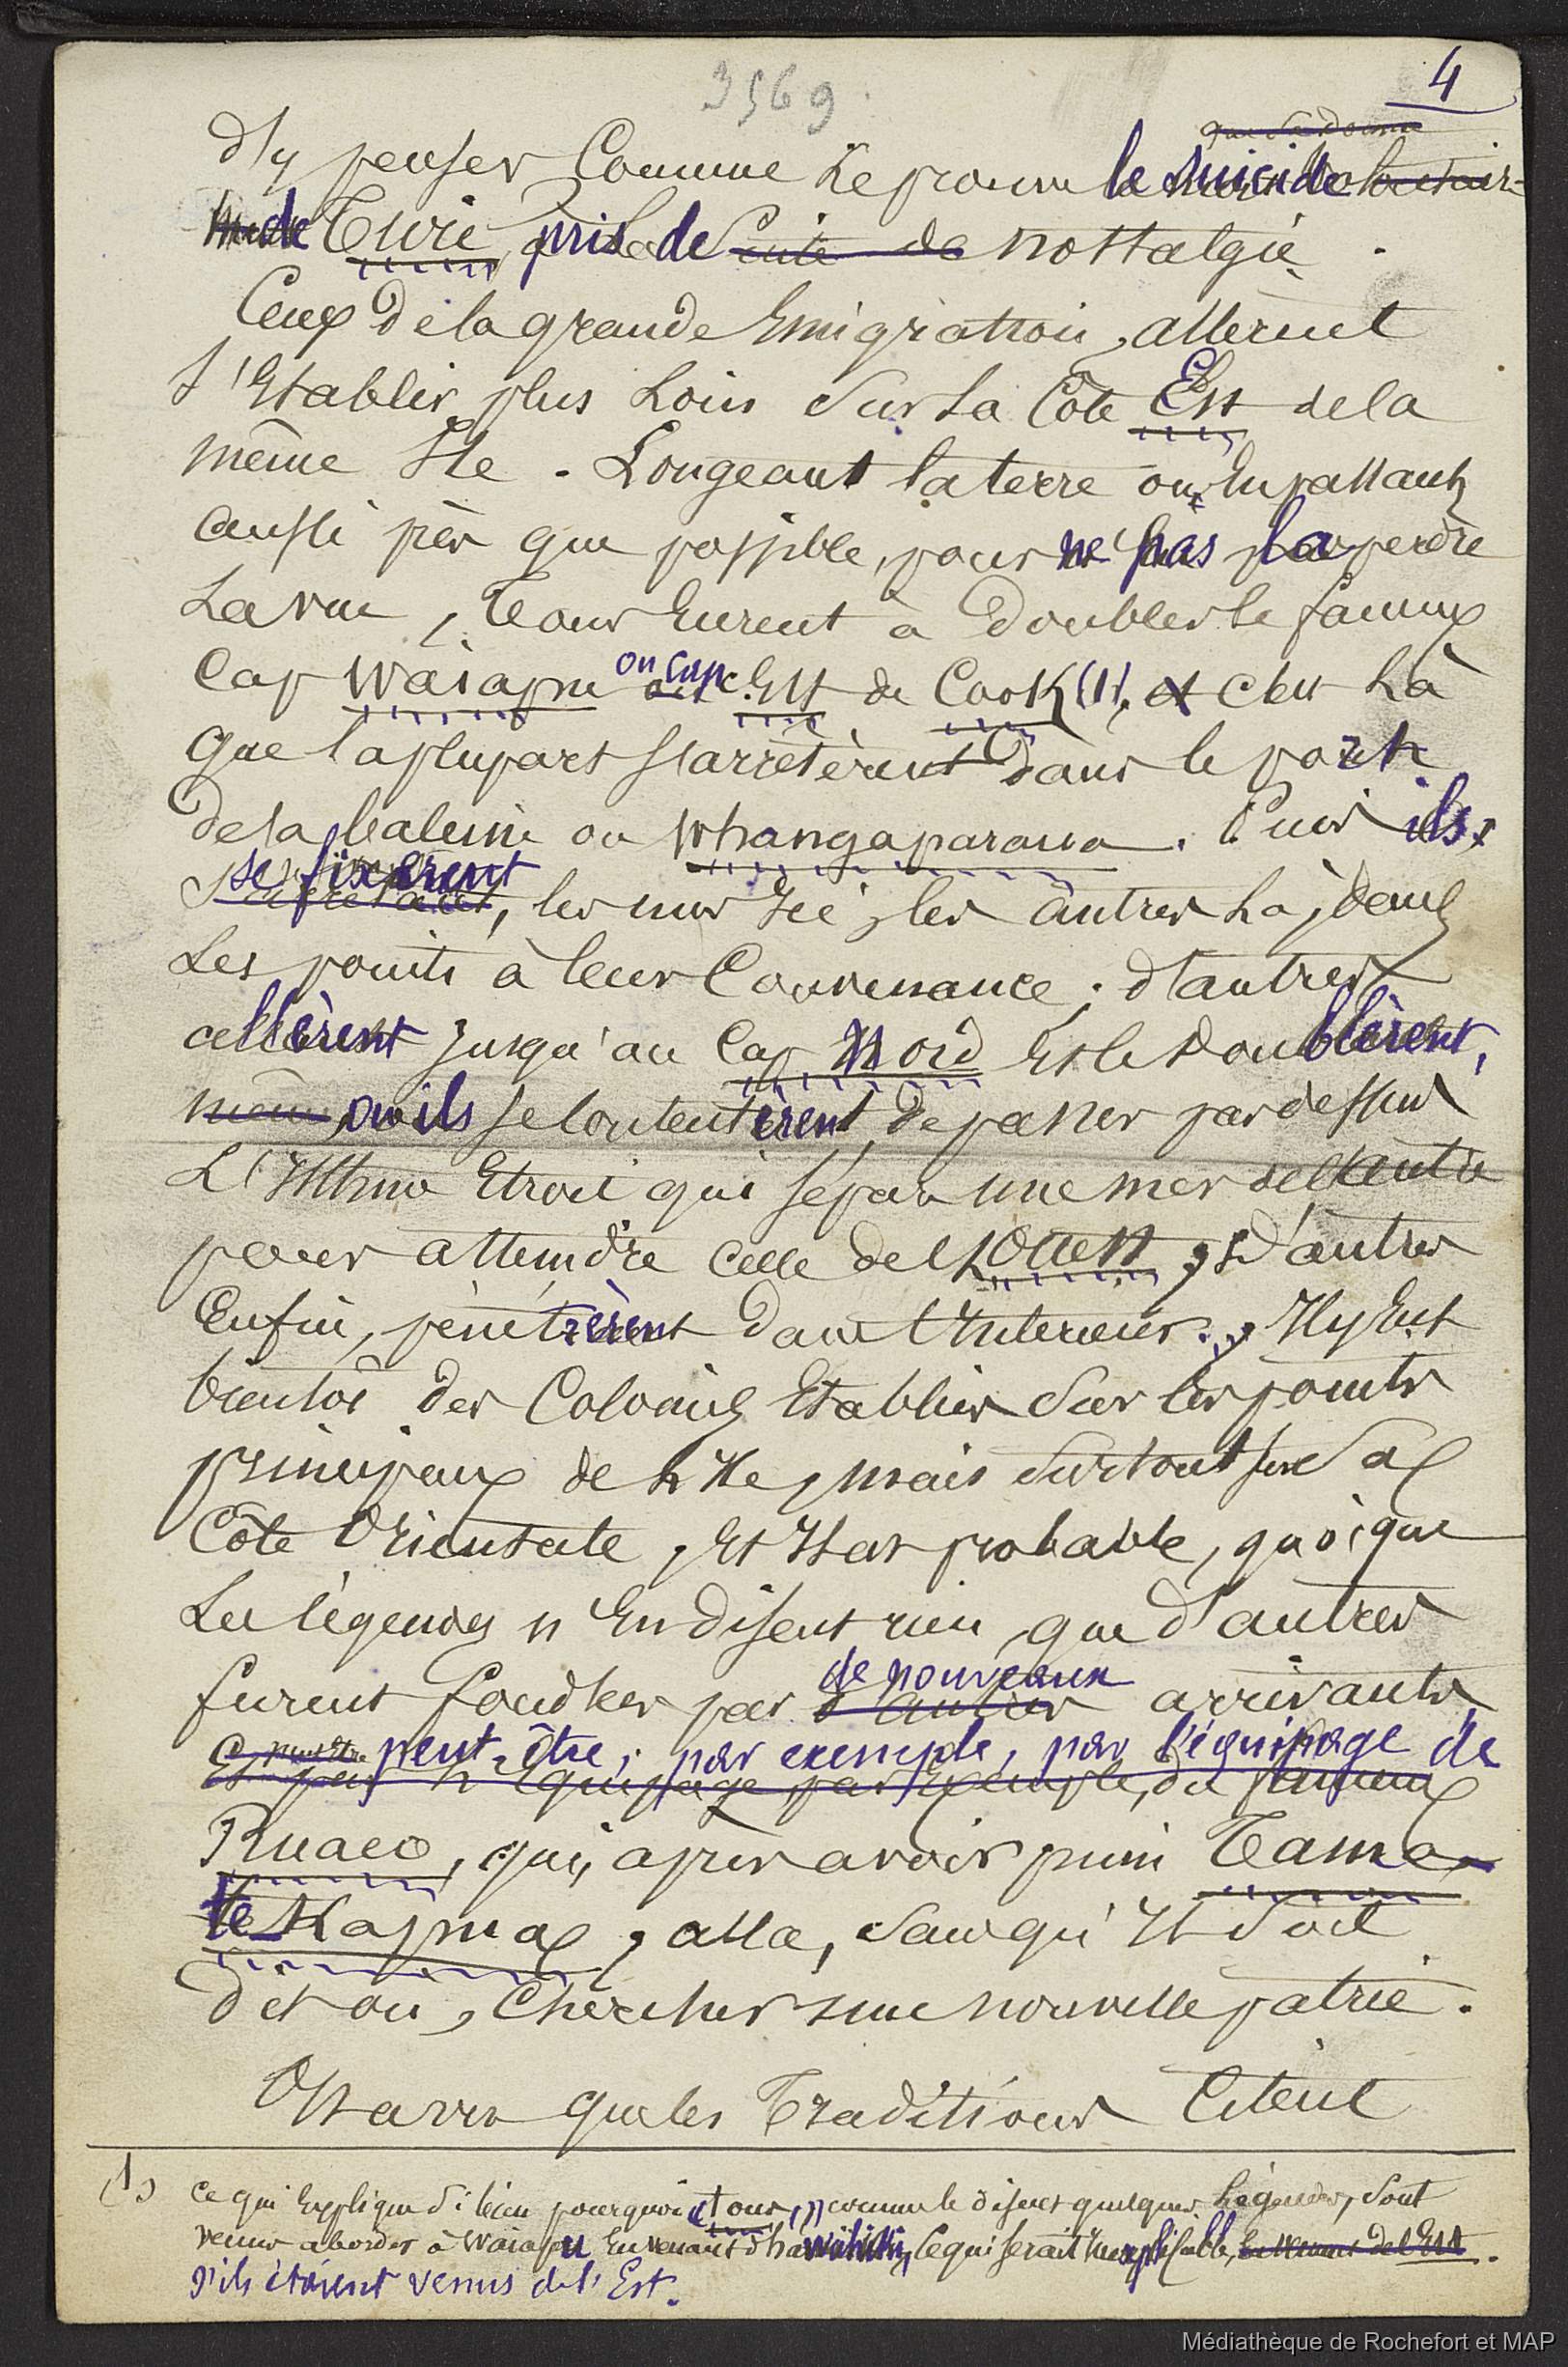 3569
4
d'y penser comme le prouve le suicide
de Turi, pris de nostalgie.
Ceux de la grande Emigration, allèrent
s'Etablir plus Loin sur la Côte Est de la
même Ile. Longeant la terre ou En passant
aussi près que possible, pour ne pas la perdre
La vue, Tous Eurent à doubler le fameux
Cap Waiapu ou cap Est de Cook (1), et c'est Là
que la plupart s'arrêtèrent dans le port
de la baleine ou Whangaparaua. Puis ils
se fixèrent, les uns Ici, les autres Là, dans
Les points à leur Convenance ; d'autres
allèrent jusqu'au Cap Nord Et le doublèrent,
ou ils se contentèrent de passer par dessus
L'Isthme Etroit qui sépare une mer de l'autre
pour atteindre celle de l'Ouest ; d'autres
Enfin, pénétrèrent dans l'Interieur. Il y Eut
bientôt des Colonies Etablies sur les points
principaux de l'Ile, mais surtout sur sa
Côte Orientale, Et Il est probable, quoique
Les légendes n'En disent rien, que d'autres
furent fondées par de nouveaux arrivants
peut-être, par exemple, par l'équipage de
Ruaeo, qui, après avoir puni Tama-
te-Kapua, alla, sans qu'Il soit
dit où, chercher une nouvelle patrie.
On a vu que les Traditions Citent
(1) Ce qui Explique si bien pourquoi « tous, » comme le disent quelques Légendes, sont
venus aborder à Waiapu En venant d'hawahiki, ce qui serait Inexplicable,
s'ils étaient venus de l'Est.
Médiathèque de Rochefort et MAP